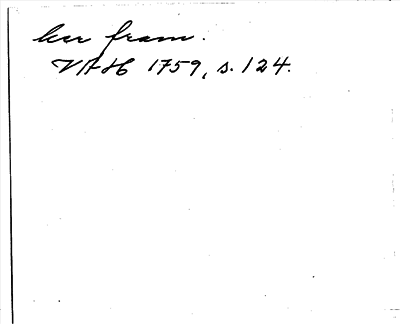 ker fram.
VAH 1759, s. 124.